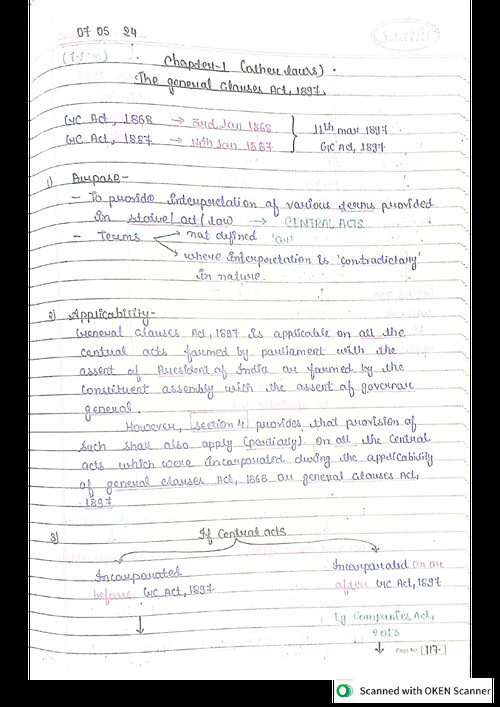 07 05 24
Saathi
Chapter-1 (other laws).
The general clauses Act, 1897.
GC Act, 1868 → 3rd Jan 1868
11th mar 1897
GC Act, 1887 → 14th Jan 1887
GC Act, 1897
1) Purpose-
- To provide interpretation of various terms provided
in statue/act/law → CENTRAL ACTS
- Terms → not defined 'or'
→ where interpretation is 'contradictary'
in nature.
2) Applicability-
General clauses Act, 1897 is applicable on all the
central acts formed by parliament with the
assent of President of India or formed by the
constituent assembly with the assent of governor
general.
However, section 4 provides that provision of
such shall also apply (partially) on all the central
acts which were incorporated during the applicability
of general clauses Act, 1868 or general clauses Act,
1897.
3) If Central acts
Incorporated
before GC Act, 1897
↓
Incorporated on or
after GC Act, 1897
Eg Companies Act,
2013
↓
Page No. 117-
Scanned with OKEN Scanner